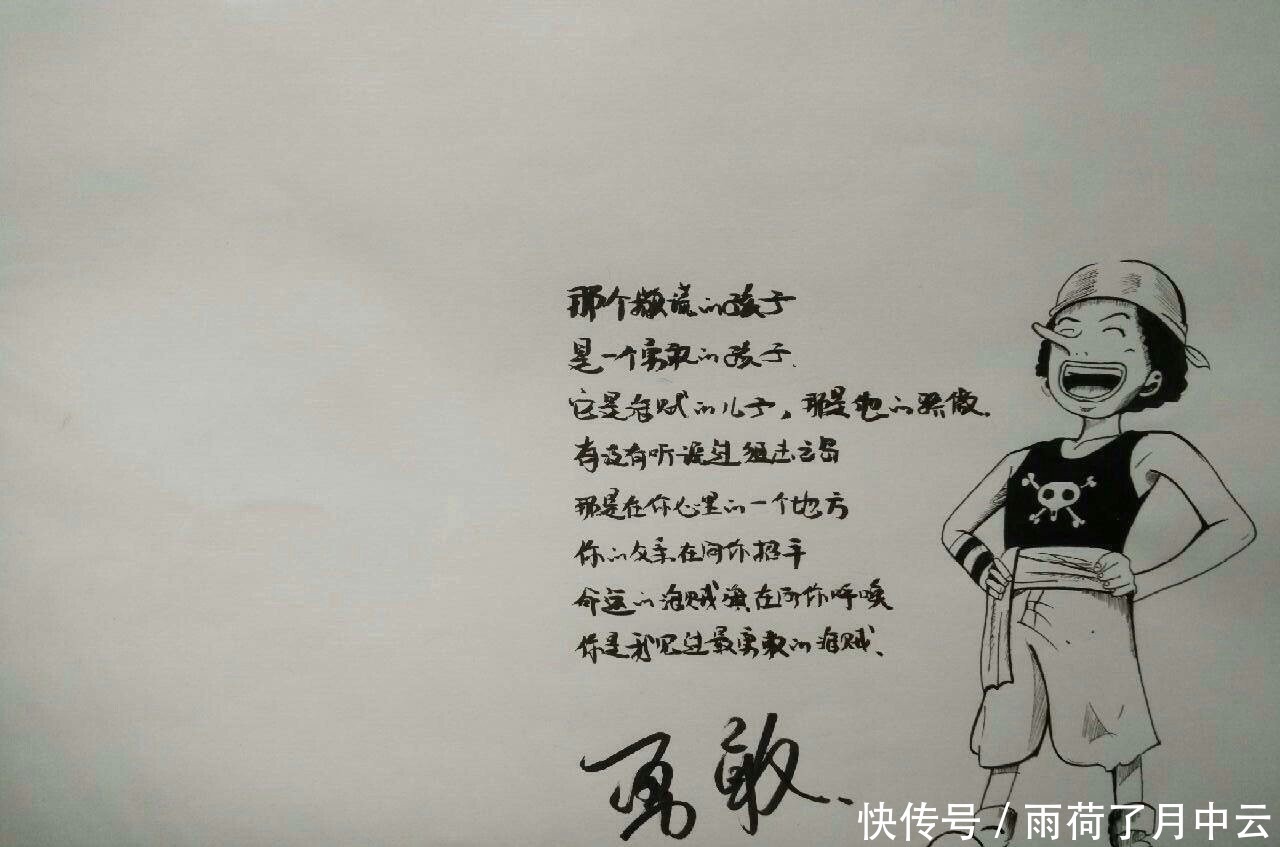 那个撒谎的孩子
是一个勇敢的孩子.
它是海贼的儿子，那是他的骄傲.
有没有听说过狙击之岛
那是在你心里的一个地方
你的父亲在向你招手
命运的海贼旗在向你呼唤
你是我见过最勇敢的海贼、
勇敢..
快传号 / 雨荷了月中云